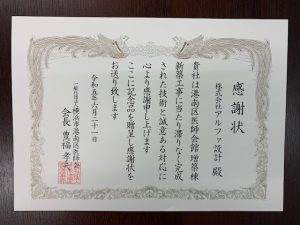 感謝状
株式会社アルファ設計 殿
貴社は港南区医師会館増築棟
新築工事に当たり滞りなく完成
された技術と誠意ある対応に
心より感謝申し上げます
ここに記念品を贈呈し感謝状を
お送り致します
令和五年六月二十一日
一般社団法人横浜市港南区医師会
会長 豊福孝夫